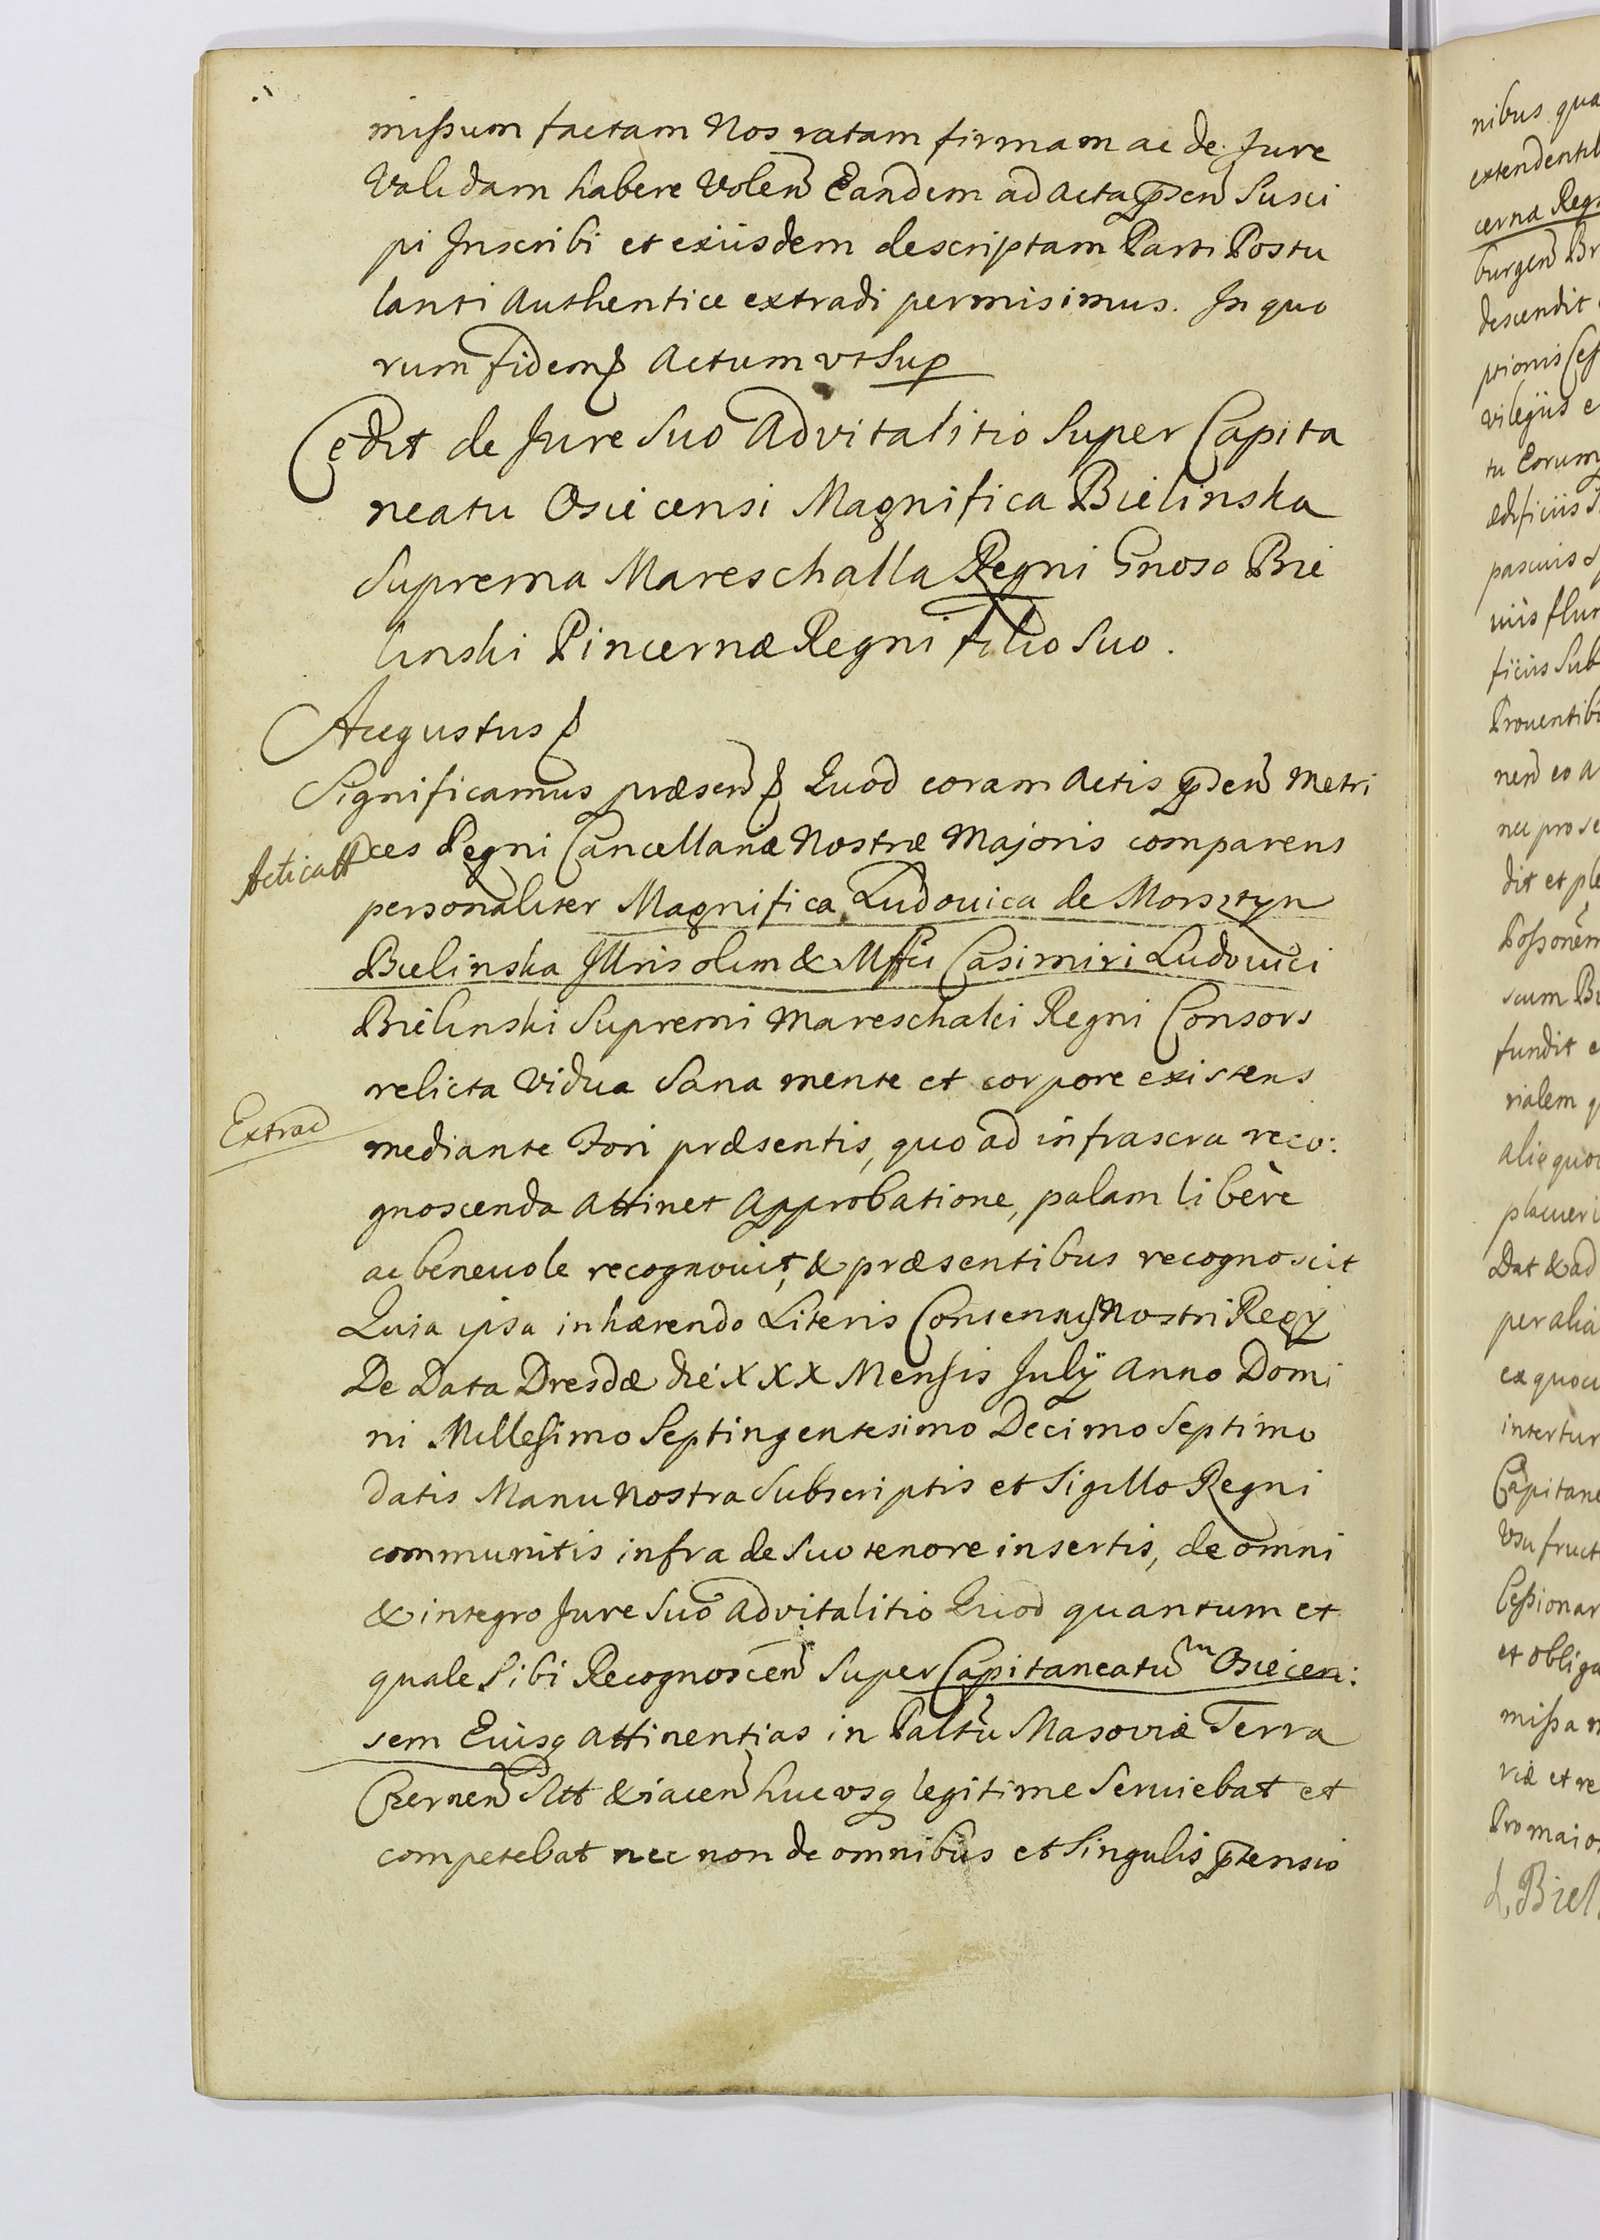 mißum factam Nos ratam firmam ac de Jure
Validam habere Volen Eandem ad acta psen Susci
pi Inscribi et eiusdem descriptam Parti Postu
lanti Authentice extradi permisimus. In quo
rum fidem Actum vt Sup
Cedit de Jure Suo Advitalitio Super Capita
neatu Osiecensi Magnifica Bielinska
Suprema Mareschalla Regni Gnoso Bie
linski Pincernæ Regni filio Suo.
Augustus
Significamus præsen Quod coram Actis pden Metri
Acticatt
ces Regni Cancellariæ Nostræ Majoris comparens
personaliter Magnifica Ludovica de Morsztyn
Bielinska Illris olim & Mffci Casimiri Ludovici
Bielinski Supremi Mareschalci Regni Consors
relicta Vidua Sana mente et corpore existens
Extrad
mediante Fori præsentis, quo ad infrascra reco:
gnoscenda attinet Approbatione, palam liberè
ac beneuole recognouit, & præsentibus recognoscit
Quia ipsa inhærendo Literis Consensus Nostri Regÿ
De Data Dresdæ die XXX Mensis Julÿ Anno Domi
ni Millesimo Septingentesimo Decimo Septimo
datis Manu Nostra Subscriptis et Sigillo Regni
communitis infra de Suo tenore insertis, de omni
& integro Jure Suo Advitalitio Quod quantum et
quale Sibi Recognoscen Super Capitaneatum Osiecen:
sem Eiusq attinentias in Paltu Masoviæ Terra
Czernen Sitt & iacen hucvsq legitime Seruiebat et
competebat nec non de omnibus et Singulis ptensio
nibus qua
extendentib
cernæ Regn
burgen Br
descendit
ptionis
vilegiis e
tu Eorum
ædificiis
pascuis
uiis flu
ficiis Sub
Prouentib
nen eo
nec pro se
dit et ple
Poßonem
scum Bi
fundit e
rialem
alie quoc
placueri
Dat & ad
per alia
ex quocu
intertur
Capitane
Vsu fruct
Ceßionar
et obliga
mißa
viæ et re
Pro maio
L. Biel